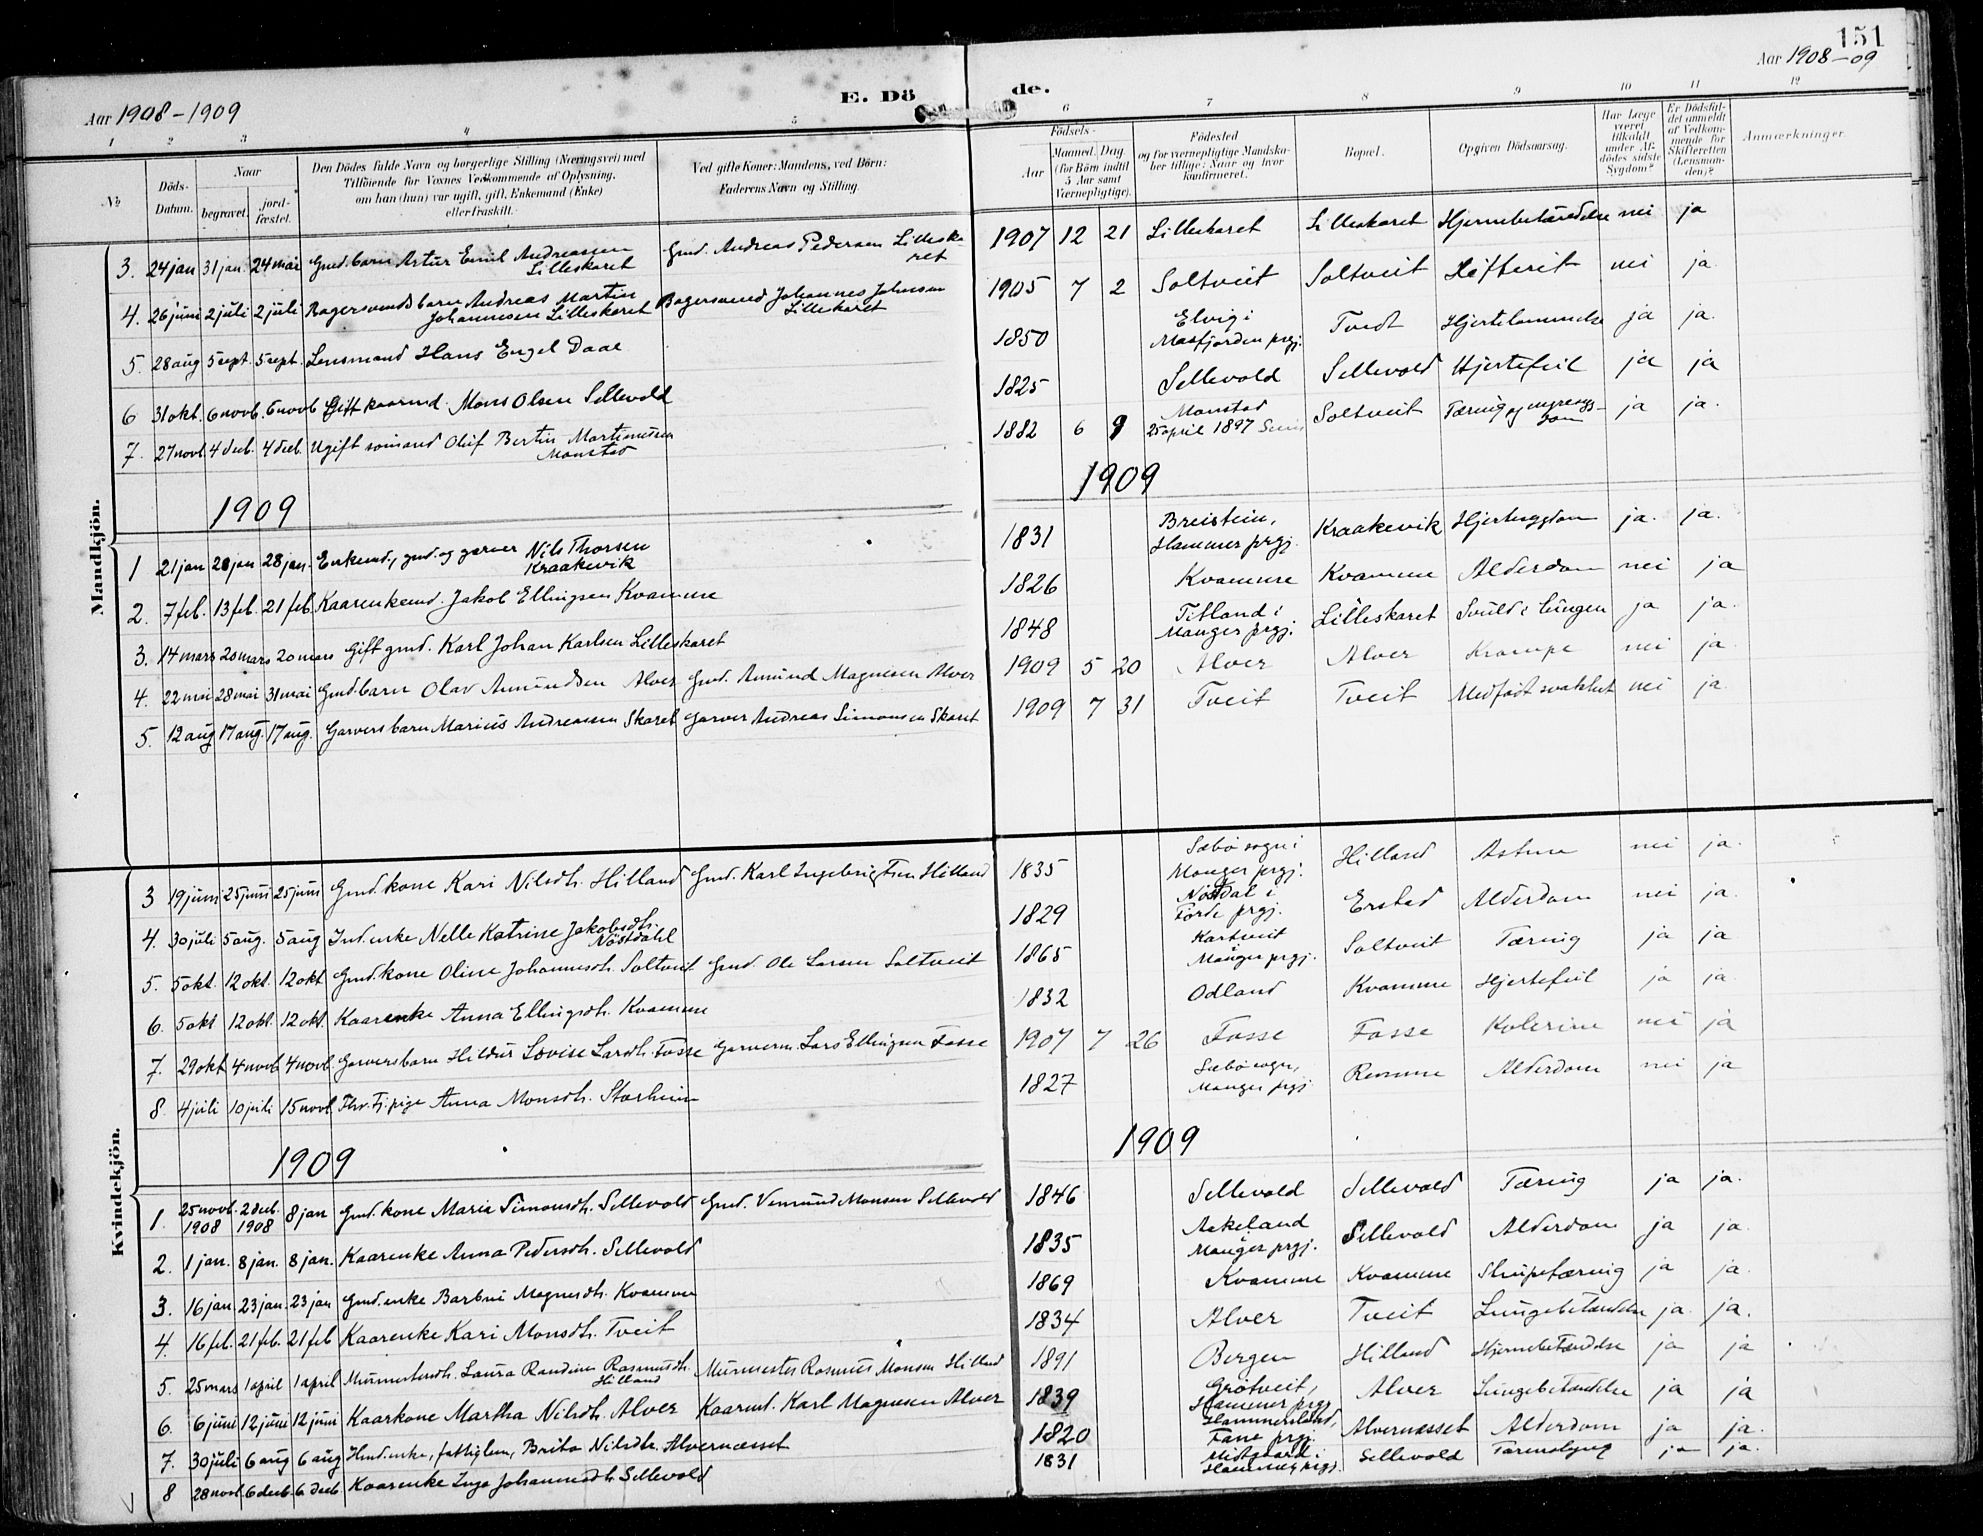 151
Aar 1908-1909
E. Dö
de.
Aar 1908-09
1 2 3 4 5 6 7 8 9 10 11 12
№
Döds-
Datum.
Naar
begravet.
jord-
fæstet.
Den Dödes fulde Navn og borgerlige Stilling (Næringsvei) med
Tilföiende for Voxnes Vedkommende af Oplysning,
om han (hun) var ugift, gift, Enkemand (Enke)
eller fraskilt.
Ved gifte Koner: Mandens, ved Börn:
Faderens Navn og Stilling.
Födsels-
Aar
Maaned. Dag.
(for Börn indtil
5 Aar samt
Værnepligtige).
Födested
og for værnepligtige Mandska-
ber tillige: Naar og hvor
konfirmeret.
Bopæl.
Opgiven Dödsaarsag.
Har Læge
været
tilkaldt
under Af-
dödes sidste
Sygdom?
Er Dödsfal-
det anmeldt
af Vedkom-
mende for
Skifteretten
(Lensman-
den)?
Anmærkninger.
Mandkjön.
3. 24 jan 31 jan. 24 mai Gmd.barn Artur Emil Andreassen Lilleskaret Gmd. Andreas Pedersen Lilleskaret 1907 12 21 Lilleskaret Lilleskaret Hjernebetændelse nei ja
4. 26 juni 2 juli 2 juli Bagersvends barn Andreas Martin Johannesen Lilleskaret Bagersvend Johannes Johnsen Lilleskaret 1905 7 2 Soltveit Soltveit nei ja.
5. 28 aug 5 sept. 5 sept. Lensmand Hans Engel Daae 1850 Elvig i Masfjorden prgj. Tvedt Hjertelammelse ja ja.
6 31 okt. 6 novb. 6 novb Gift kaarmd. Mons Olsen Sellevold 1825 Sellevold Sellevold Hjertefeil ja ja
7. 27 novb. 4 decb. 4 decb. Ugift sömand Oluf Bertin Martinussen Monstad 1882 6 9 Monstad 25 april 1897 Soltveit Tæring og ja ja.
1909 1909
1 21 jan 28 jan 28 jan. Enkemd., gmd. og garver Nils Thorsen Kraakevik 1831 Breistein, Hammer prgj. Kraakevik Hjertesygdom ja. ja.
2. 7 feb. 13 feb. 21 feb. Kaarenkemd. Jakob Ellingsen Kvamme 1826 Kvamme Kvamme Alderdom nei ja
3. 14 mars 20 mars 20 mars Gift gmd. Karl Johan Karlsen Lilleskaret 1848 Titland i Manger prgj. Lilleskaret Svulst i lungen ja ja.
4. 22 mai 28 mai 31 mai Gmd.barn Olav Amundsen Alver Gmd. Amund Magnesen Alver 1909 5 20 Alver Alver Krampe nei ja.
5. 12 aug 17 aug. 17 aug. Garvers barn Marius Andreassen Skaret Garver Andreas Simonsen Skaret 1909 7 31 Tveit Tveit Medfødt svakhet nei ja.
Kvindekjön.
3 19 juni 25 juni 25 juni Gmd.kone Kari Nilsdtr. Hilland Gmd. Karl Ingebrigtsen Hilland 1835 Sæbö sogn i Manger prgj. Hilland Astma nei ja.
4. 30 juli 5 aug. 5 aug Ind.enke Nelle Katrine Jakobsdtr. Nöstdahl 1829 Nöstdal i Förde prgj. Erstad Alderdom nei ja.
5. 5 okt. 12 okt. 12 okt Gmd.kone Oline Johannesdtr. Soltveit Gmd. Ole Larsen Soltveit 1865 Kartveit Manger prgj. Soltveit Tæring ja ja
6. 5 okt 12 okt. 12 okt. Kaarenke Anna Ellingsdtr. Kvamme 1832 Odland Kvamme Hjertefeil ja ja.
7. 29 okt 4 novb 4 novb. Garversbarn Hildur Lovise Larsdtr. Fosse Garverm. Lars Ellingsen Fosse 1907 7 26 Fosse Fosse Kolerine nei ja
8. 4 juli 10 juli 15 novb. Fhv. tj.pige Anna Monsdtr. Storheim 1827 Sæbö sogn, Manger prgj. Remme Alderdom nei ja
1909 1909
1. 25 novb. 1908 2 decb. 1908 8 jan Gmd.kone Maria Simonsdtr. Sellevold Gmd. Vemund Monsen Sellevold 1846 Sellevold Sellevold Tæring ja ja.
2. 1 jan. 8 jan. 8 jan. Kaarenke Anna Pedersdtr. Sellevold 1835 Askeland Manger prgj. Sellevold Alderdom ja ja.
3. 16 jan 23 jan. 23 jan Gmd.enke Barbra Magnesdtr. Kvamme 1869 Kvamme Kvamme Strupetæring ja ja.
4. 16 feb. 21 feb. 21 feb Kaarenke Kari Monsdtr. Tveit 1834 Alver Tveit Lungebetændelse ja. ja.
5. 25 mars 1 april 1 april Murmesterdtr. Laura Randine Rasmusdtr. Hilland Murmester Rasmus Monsen Hilland 1891 Bergen Hilland Hjernebetændelse ja ja
6. 6 juni 12 juni 12 juni Kaarkone Martha Nilsdtr. Alver Kaarmd. Karl Magnesen Alver 1839 Grötveit, Hammer prgj. Alver Lungebetændelse ja ja
7. 30 juli 6 aug 6 aug Hmd.enke, fattiglem, Brita Nilsdtr. Alvernæsset 1820 Hammersland, Fane prgj. Alvernæsset Alderdom ja ja.
8 28 novb. 6 decb. 6 decb Kaarenke Inga Johannesdtr. Sellevold 1831 Midtgaard i Hammer prgj. Sellevold ja ja.